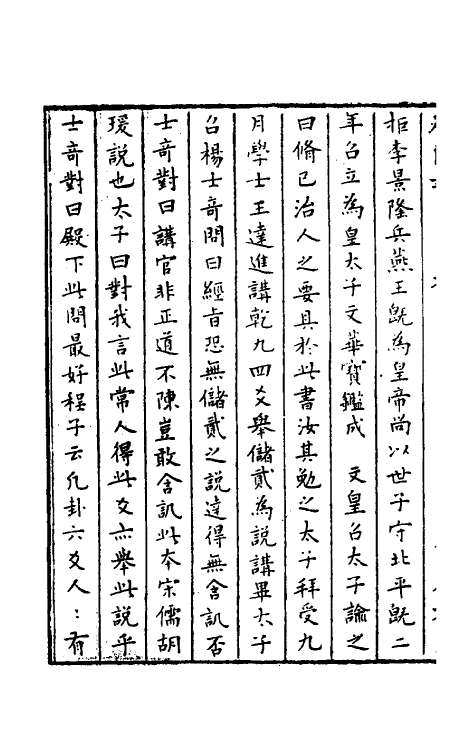 拒李景隆兵燕王既為皇帝尚以世子守北平既二
年召立為皇太子文華寶鑑成　文皇召太子諭之
曰脩己治人之要具於此書汝其勉之太子拜受九
月學士王達進講乾九四爻舉儲貳為說講畢太子
召楊士竒問曰經旨恐無儲貳之說達得無含訊否
士竒對曰講官非正道不陳豈敢含訊此本宋儒胡
瑗說也太子曰對我言此常人得此爻亦舉此說乎
士竒對曰殿下此問最好程子云凡卦六爻人：有